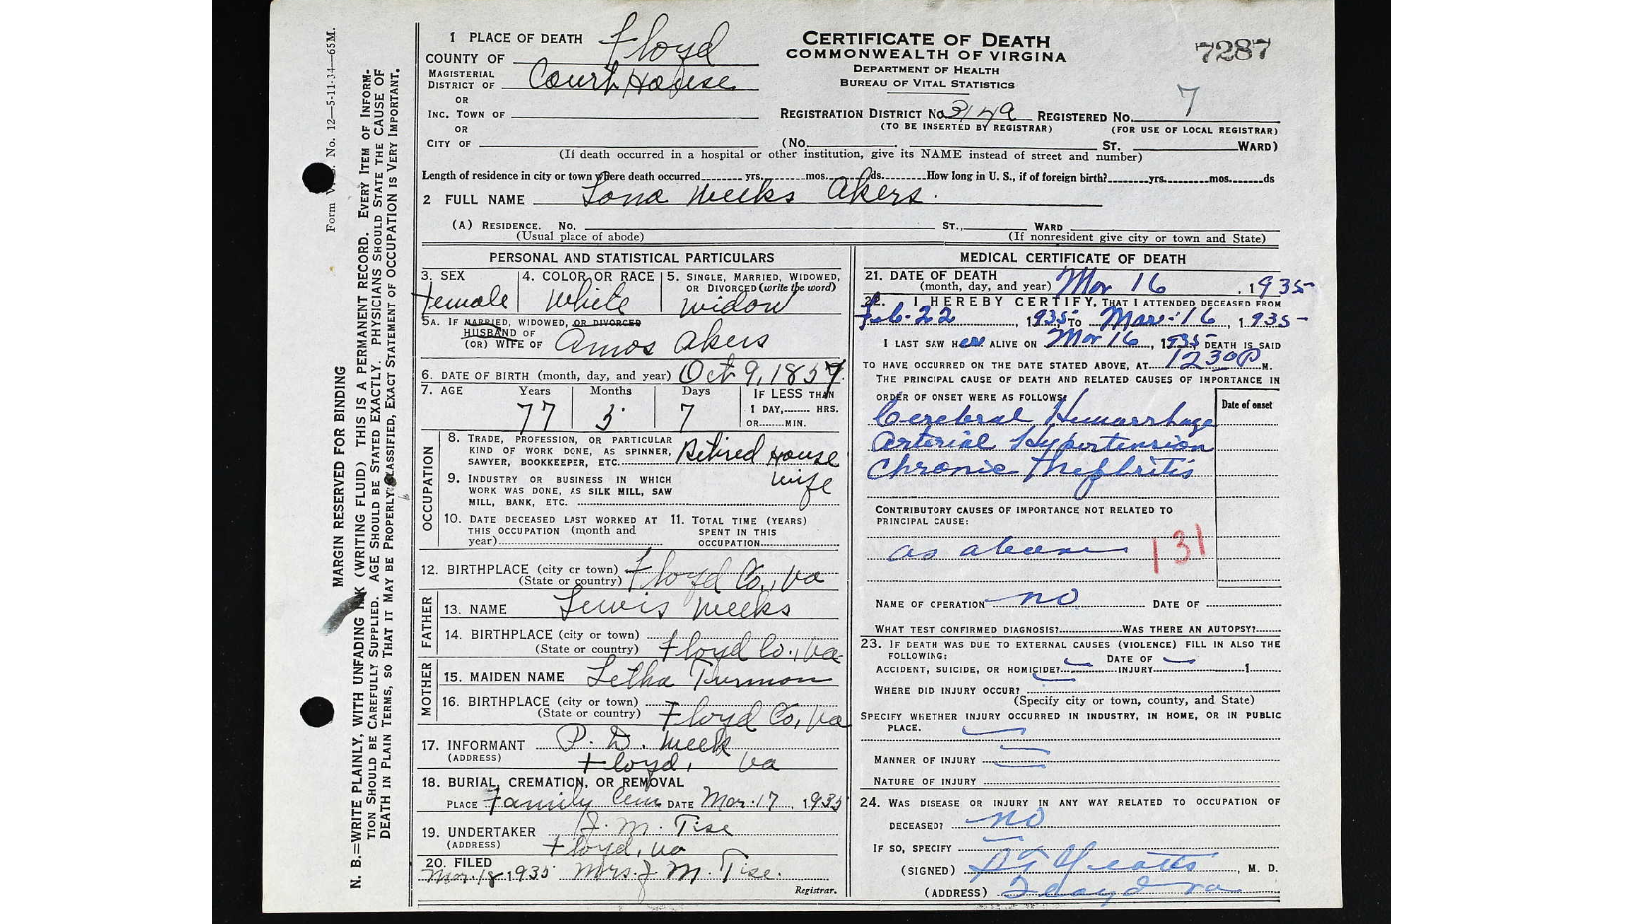 Form V. S. No. 12—5-11-34—65M.
MARGIN RESERVED FOR BINDING
N. B.—WRITE PLAINLY, WITH UNFADING INK (WRITING FLUID) THIS IS A PERMANENT RECORD. EVERY ITEM OF INFORMATION SHOULD BE CAREFULLY SUPPLIED. AGE SHOULD BE STATED EXACTLY. PHYSICIANS SHOULD STATE THE CAUSE OF DEATH IN PLAIN TERMS, SO THAT IT MAY BE PROPERLY CLASSIFIED. EXACT STATEMENT OF OCCUPATION IS VERY IMPORTANT.
1 PLACE OF DEATH
COUNTY OF Floyd
MAGISTERIAL DISTRICT OF Court House
OR
INC. TOWN OF
OR
CITY OF
CERTIFICATE OF DEATH
COMMONWEALTH OF VIRGINA
DEPARTMENT OF HEALTH
BUREAU OF VITAL STATISTICS
7287
REGISTRATION DISTRICT NO. REGISTERED NO. 7
(TO BE INSERTED BY REGISTRAR) (FOR USE OF LOCAL REGISTRAR)
(NO. ST. WARD)
(If death occurred in a hospital or other institution, give its NAME instead of street and number)
Length of residence in city or town where death occurred yrs. mos. ds. How long in U. S., if of foreign birth? yrs. mos. ds
2 FULL NAME Lona Weeks Akers.
(A) RESIDENCE. NO. ST., WARD
(Usual place of abode) (If nonresident give city or town and State)
PERSONAL AND STATISTICAL PARTICULARS
3. SEX female
4. COLOR OR RACE White
5. SINGLE, MARRIED, WIDOWED, OR DIVORCED (write the word) widow
5A. IF MARRIED, WIDOWED, OR DIVORCED
HUSBAND OF
(OR) WIFE OF Amos Akers
6. DATE OF BIRTH (month, day, and year) Oct 9, 1857
7. AGE Years 77 Months 5 Days 7 IF LESS THAN 1 DAY, HRS. OR MIN.
OCCUPATION
8. TRADE, PROFESSION, OR PARTICULAR KIND OF WORK DONE, AS SPINNER, SAWYER, BOOKKEEPER, ETC. Retired House wife
9. INDUSTRY OR BUSINESS IN WHICH WORK WAS DONE, AS SILK MILL, SAW MILL, BANK, ETC.
10. DATE DECEASED LAST WORKED AT THIS OCCUPATION (month and year)
11. TOTAL TIME (YEARS) SPENT IN THIS OCCUPATION
12. BIRTHPLACE (city or town) (State or country) Floyd Co., Va
FATHER
13. NAME Lewis Weeks
14. BIRTHPLACE (city or town) (State or country) Floyd Co., Va.
MOTHER
15. MAIDEN NAME Letha Turman
16. BIRTHPLACE (city or town) (State or country) Floyd Co, Va
17. INFORMANT P. D. Week
(ADDRESS) Floyd, Va
18. BURIAL, CREMATION, OR REMOVAL
PLACE Family Cem DATE Mar. 17, 1935
19. UNDERTAKER J. M. Tise
(ADDRESS) Floyd, Va
20. FILED Mar. 18 1935 Mrs. J. M. Tise.
Registrar.
MEDICAL CERTIFICATE OF DEATH
21. DATE OF DEATH (month, day, and year) Mar 16, 1935
22. I HEREBY CERTIFY, THAT I ATTENDED DECEASED FROM
Feb. 22, 1935 TO Mar. 16, 1935
I LAST SAW HER ALIVE ON Mar 16, 1935 DEATH IS SAID
TO HAVE OCCURRED ON THE DATE STATED ABOVE, AT 1230 P. M.
THE PRINCIPAL CAUSE OF DEATH AND RELATED CAUSES OF IMPORTANCE IN ORDER OF ONSET WERE AS FOLLOWS:
Date of onset
Cerebral Hemorrhage
Arterial Hypertension
Chronic Nephritis
CONTRIBUTORY CAUSES OF IMPORTANCE NOT RELATED TO PRINCIPAL CAUSE:
as above 131
NAME OF OPERATION no DATE OF
WHAT TEST CONFIRMED DIAGNOSIS? WAS THERE AN AUTOPSY?
23. IF DEATH WAS DUE TO EXTERNAL CAUSES (VIOLENCE) FILL IN ALSO THE FOLLOWING:
ACCIDENT, SUICIDE, OR HOMICIDE? DATE OF INJURY 1
WHERE DID INJURY OCCUR?
(Specify city or town, county, and State)
SPECIFY WHETHER INJURY OCCURRED IN INDUSTRY, IN HOME, OR IN PUBLIC PLACE.
MANNER OF INJURY
NATURE OF INJURY
24. WAS DISEASE OR INJURY IN ANY WAY RELATED TO OCCUPATION OF DECEASED? no
IF SO, SPECIFY
(SIGNED) M. D.
(ADDRESS) Floyd Va